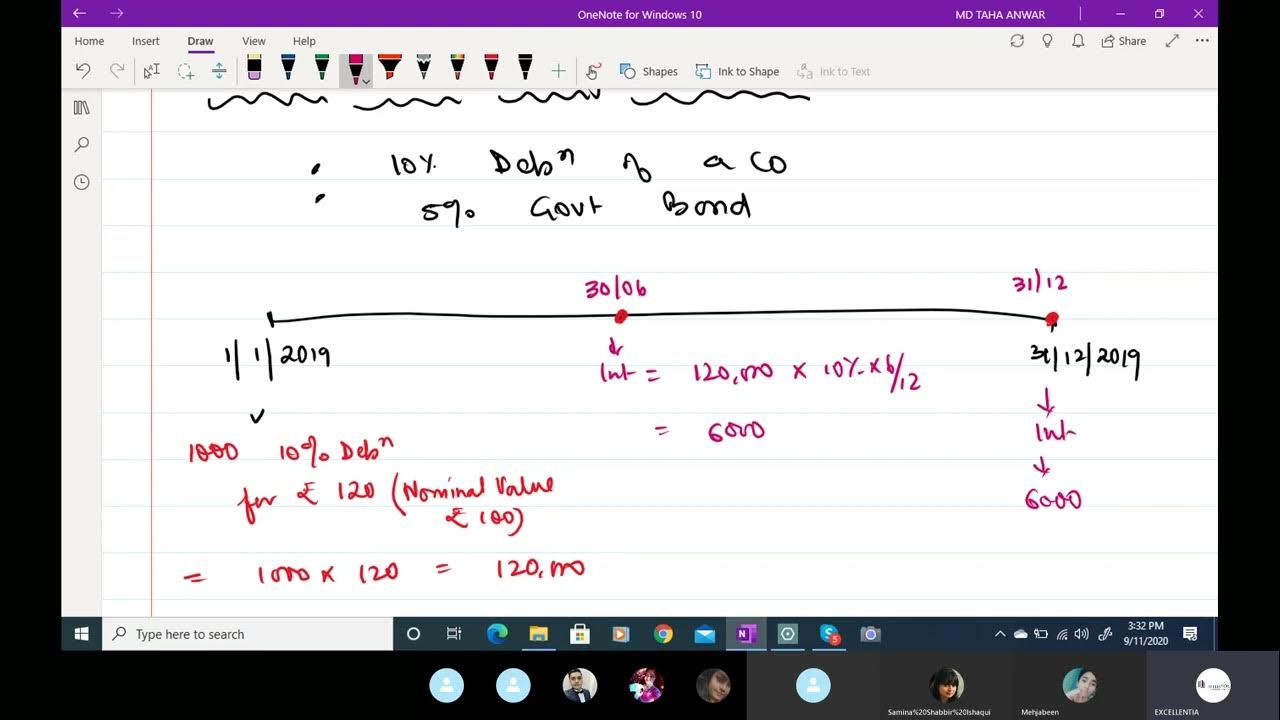 OneNote for Windows 10
MD TAHA ANWAR
Home Insert Draw View Help
Share
Shapes
Ink to Shape
Ink to Text
10% Debⁿ % a CO
5% Govt Bond
30/06
31/12
1/1/2019
31/12/2019
Int = 120,000 x 10% x 6/12
= 6000
Int
6000
1000 10% Debⁿ
for ₹ 120 (Nominal Value
₹ 100)
= 1000 x 120 = 120,000
Type here to search
3:32 PM
9/11/2020
Samina%20Shabbir%20Ishaqui
Mehjabeen
EXCELLENTIA